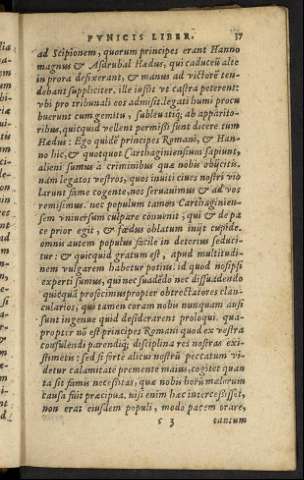 PVNICIS LIBER. 37
ad Scipionem, quorum principes erant Hanno
magnus & Asdrubal Hædus, qui caduceũ alte
in prora defixerant, & manus ad victorẽ ten-
debant suppliciter. ille iussit vt castra peterent:
vbi pro tribunali eos admisit. legati humi procu
buerunt cum gemitu, subleuatiq; ab apparito-
ribus, quicquid vellent permissi sunt dicere tum
Hædus: Ego quidẽ principes Romani, & Han-
no hic, & quotquot Carthaginiensium sapiunt,
alieni sumus à criminibus quæ nobis obijcitis.
nam legatos vestros, quos inuiti ciues nostri vio
larunt fame cogente, nos seruauimus & ad vos
remisimus. nec populum tamen Carthaginien-
sem vniuersum culpare conuenit, qui & de pa
ce prior egit, & fœdus oblatum iurat cupide.
omnis autem populus facile in deterius seduci-
tur: & quicquid gratum est, apud multitudi-
nem vulgarem habetur potius. id quod nosipsi
experti sumus, qui nec suadẽdo nec dissuadendo
quicquã profecimus propter obtrectatores clan-
cularios, qui tamen coram nobis nunquam ausi
sunt ingenue quid desiderarent proloqui. qua-
propter nõ est principes Romani quod ex vestra
consulendi parendiq; disciplina res nostras exi-
stimetis: sed si fortè alicui nostrũ peccatum vi-
detur calamitate premente maius, cogitet quan
ta sit famis necessitas, quæ nobis horũ malorum
causa fuit præcipua. nisi enim hæc intercessisset,
non erat eiusdem populi, modo pacem orare,
s 3 tantum